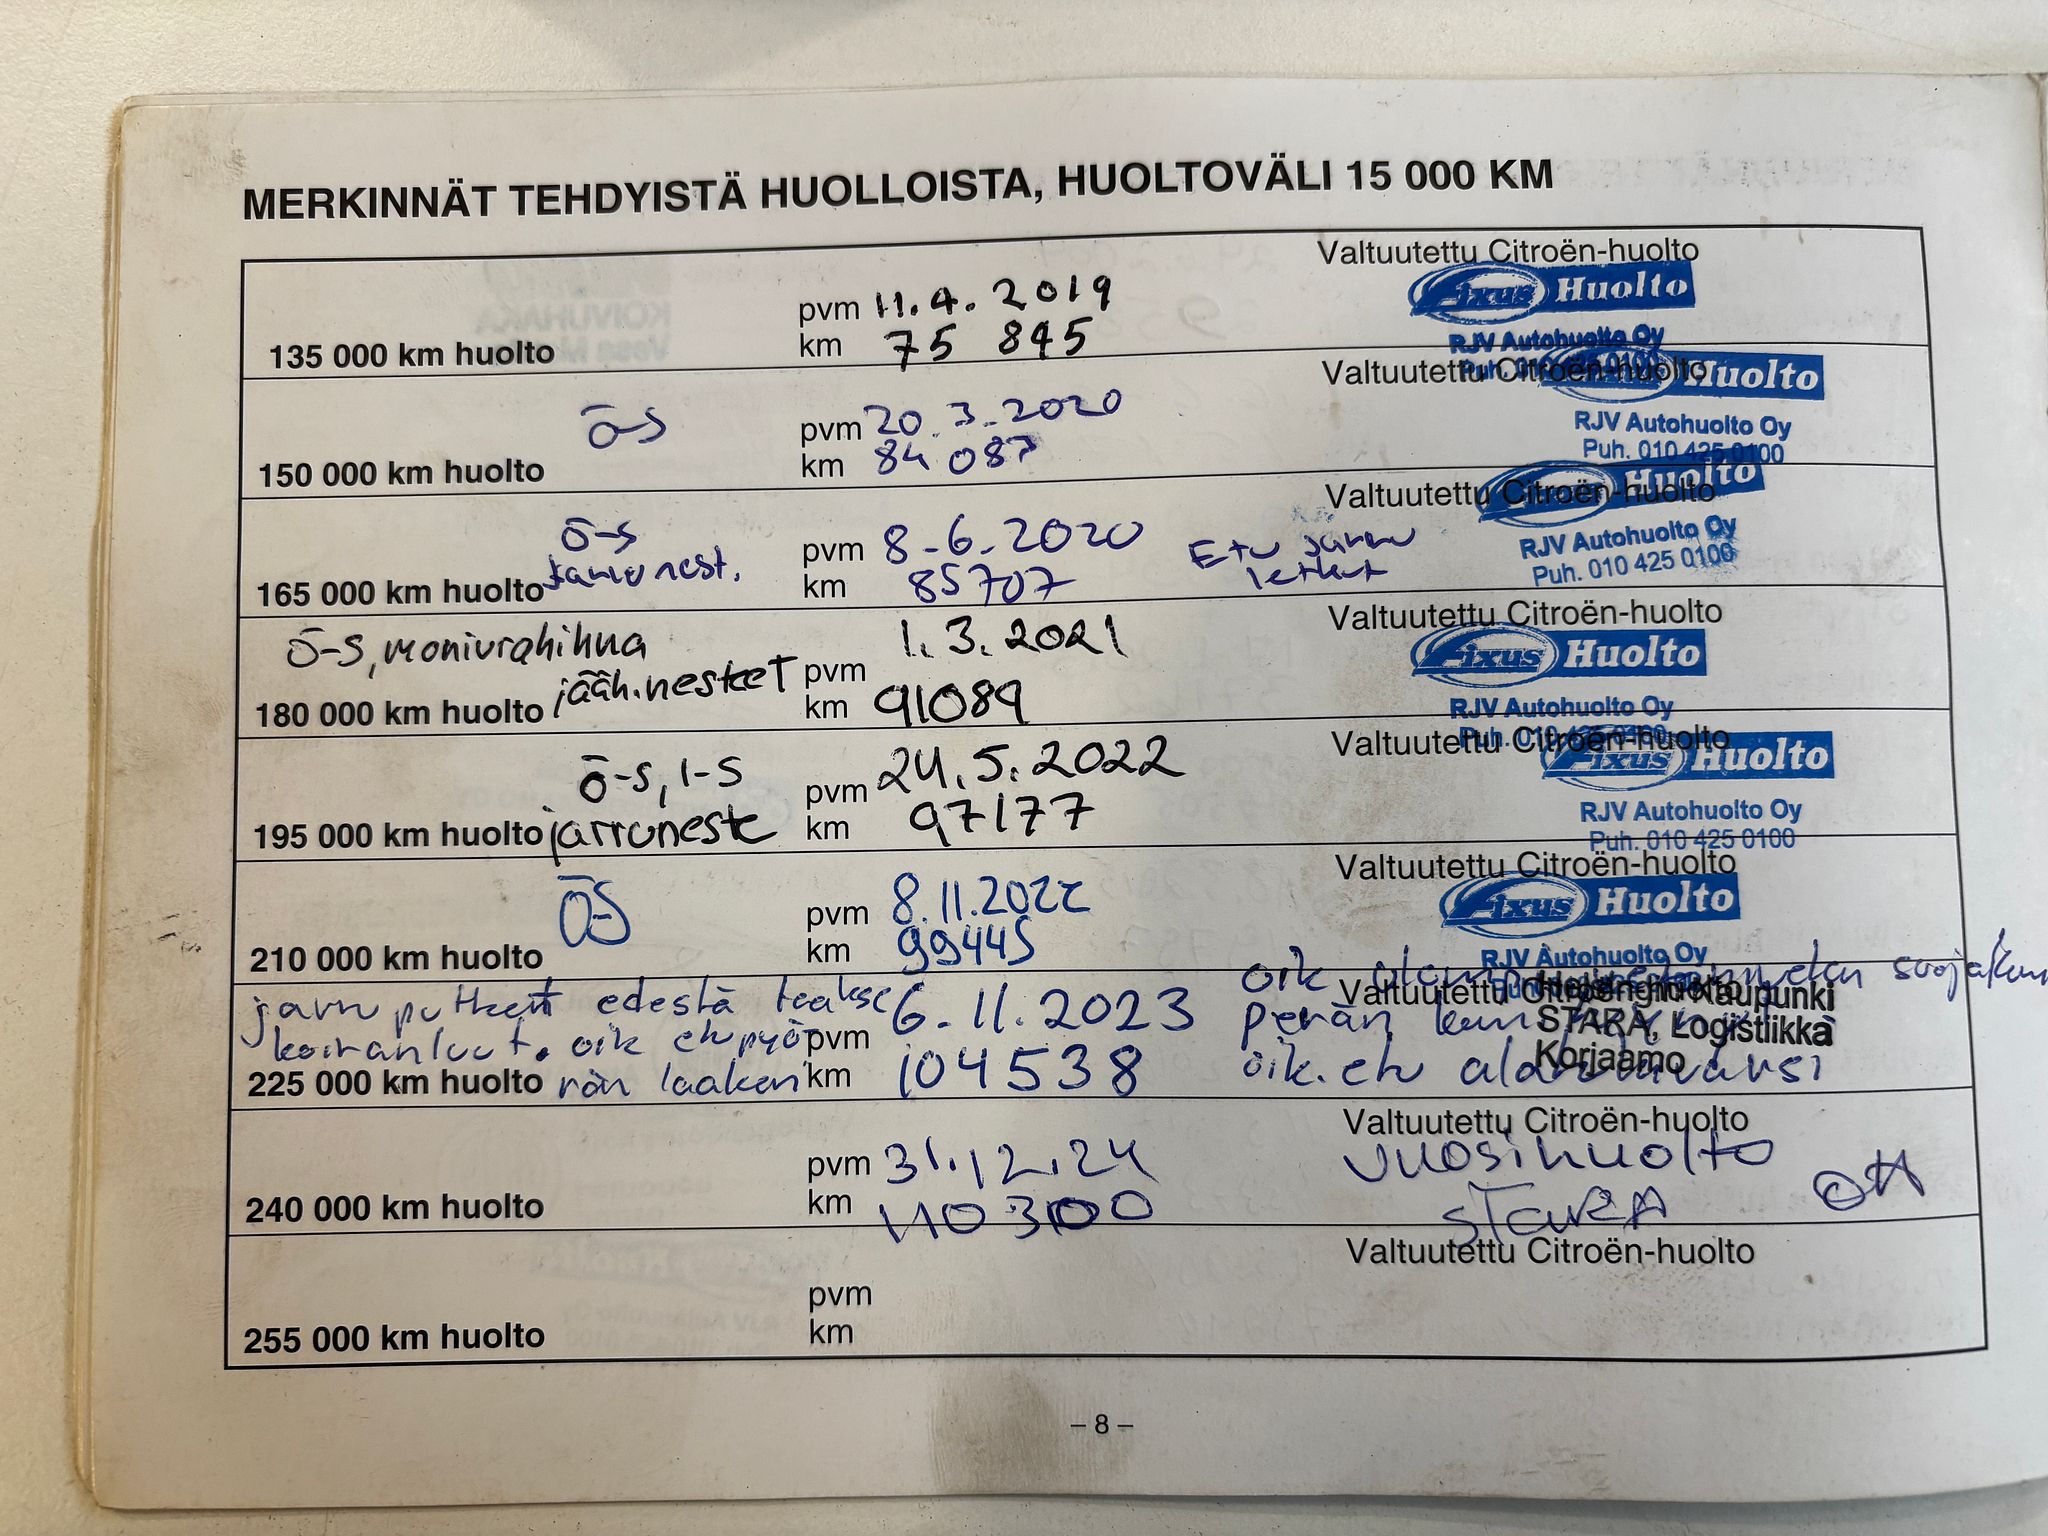 MERKINNÄT TEHDYISTÄ HUOLLOISTA, HUOLTOVÄLI 15 000 KM
Valtuutettu Citroën-huolto
Fixus Huolto
pvm 11.4.2019
RJV Autohuolto Oy
135 000 km huolto km 75 845
Puh. 010 425 0100
Valtuutettu Citroën-huolto
Fixus Huolto
Ö-S pvm 20.3.2020
RJV Autohuolto Oy
150 000 km huolto km 84 087
Puh. 010 425 0100
Valtuutettu Citroën-huolto
Fixus Huolto
Ö-S pvm 8.6.2020 Etu jarru
RJV Autohuolto Oy
165 000 km huolto jarrunest. km 85707 letkut
Puh. 010 425 0100
Valtuutettu Citroën-huolto
Fixus Huolto
Ö-S, moniurahihna pvm 1.3.2021
RJV Autohuolto Oy
180 000 km huolto jääh.nesteet km 91089
Puh. 010 425 0100
Valtuutettu Citroën-huolto
Fixus Huolto
Ö-S, I-S pvm 24.5.2022
RJV Autohuolto Oy
195 000 km huolto jarruneste km 97177
Puh. 010 425 0100
Valtuutettu Citroën-huolto
Fixus Huolto
Ö-S pvm 8.11.2022
RJV Autohuolto Oy
210 000 km huolto km 99445
oik suojakumi
Valtuutettu Citroën-huolto
Helsingin kaupunki
jarru putket edestä taakse pvm 6.11.2023 perän
STARA, Logistiikka
koiranluut. oik etu pyö
Korjaamo
225 000 km huolto rän laakeri km 104538 oik. etu
Valtuutettu Citroën-huolto
pvm 31.12.24 vuosihuolto
240 000 km huolto km 110300 STARA
Valtuutettu Citroën-huolto
pvm
255 000 km huolto km
– 8 –